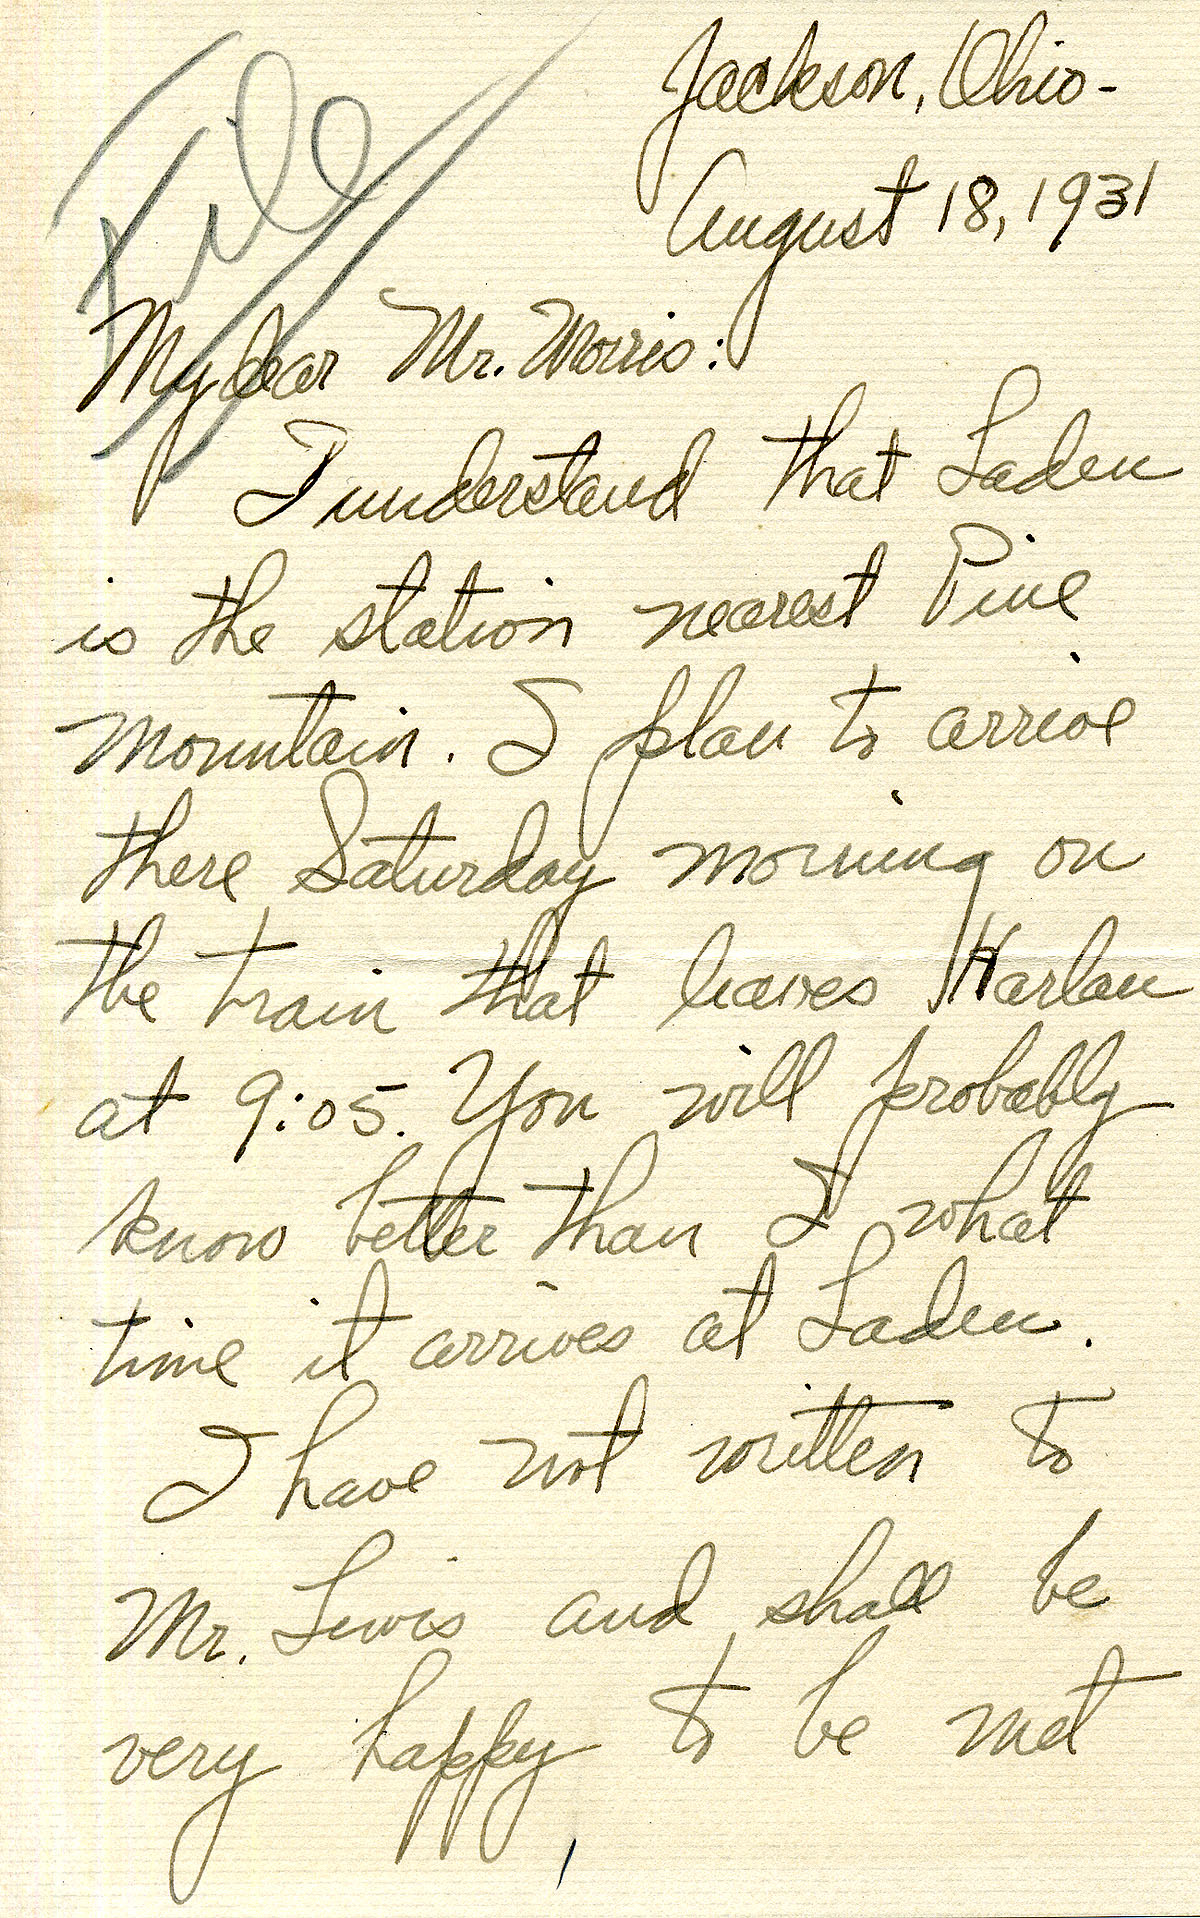 File
Jackson, Ohio-
August 18, 1931
My dear Mr. Morris:
I understand that Laden
is the station nearest Pine
Mountain. I plan to arrive
there Saturday morning on
the train that leaves Harlan
at 9:05. You will probably
know better than I what
time it arrives at Laden.
I have not written to
Mr. Lewis and shall be
very happy to be met